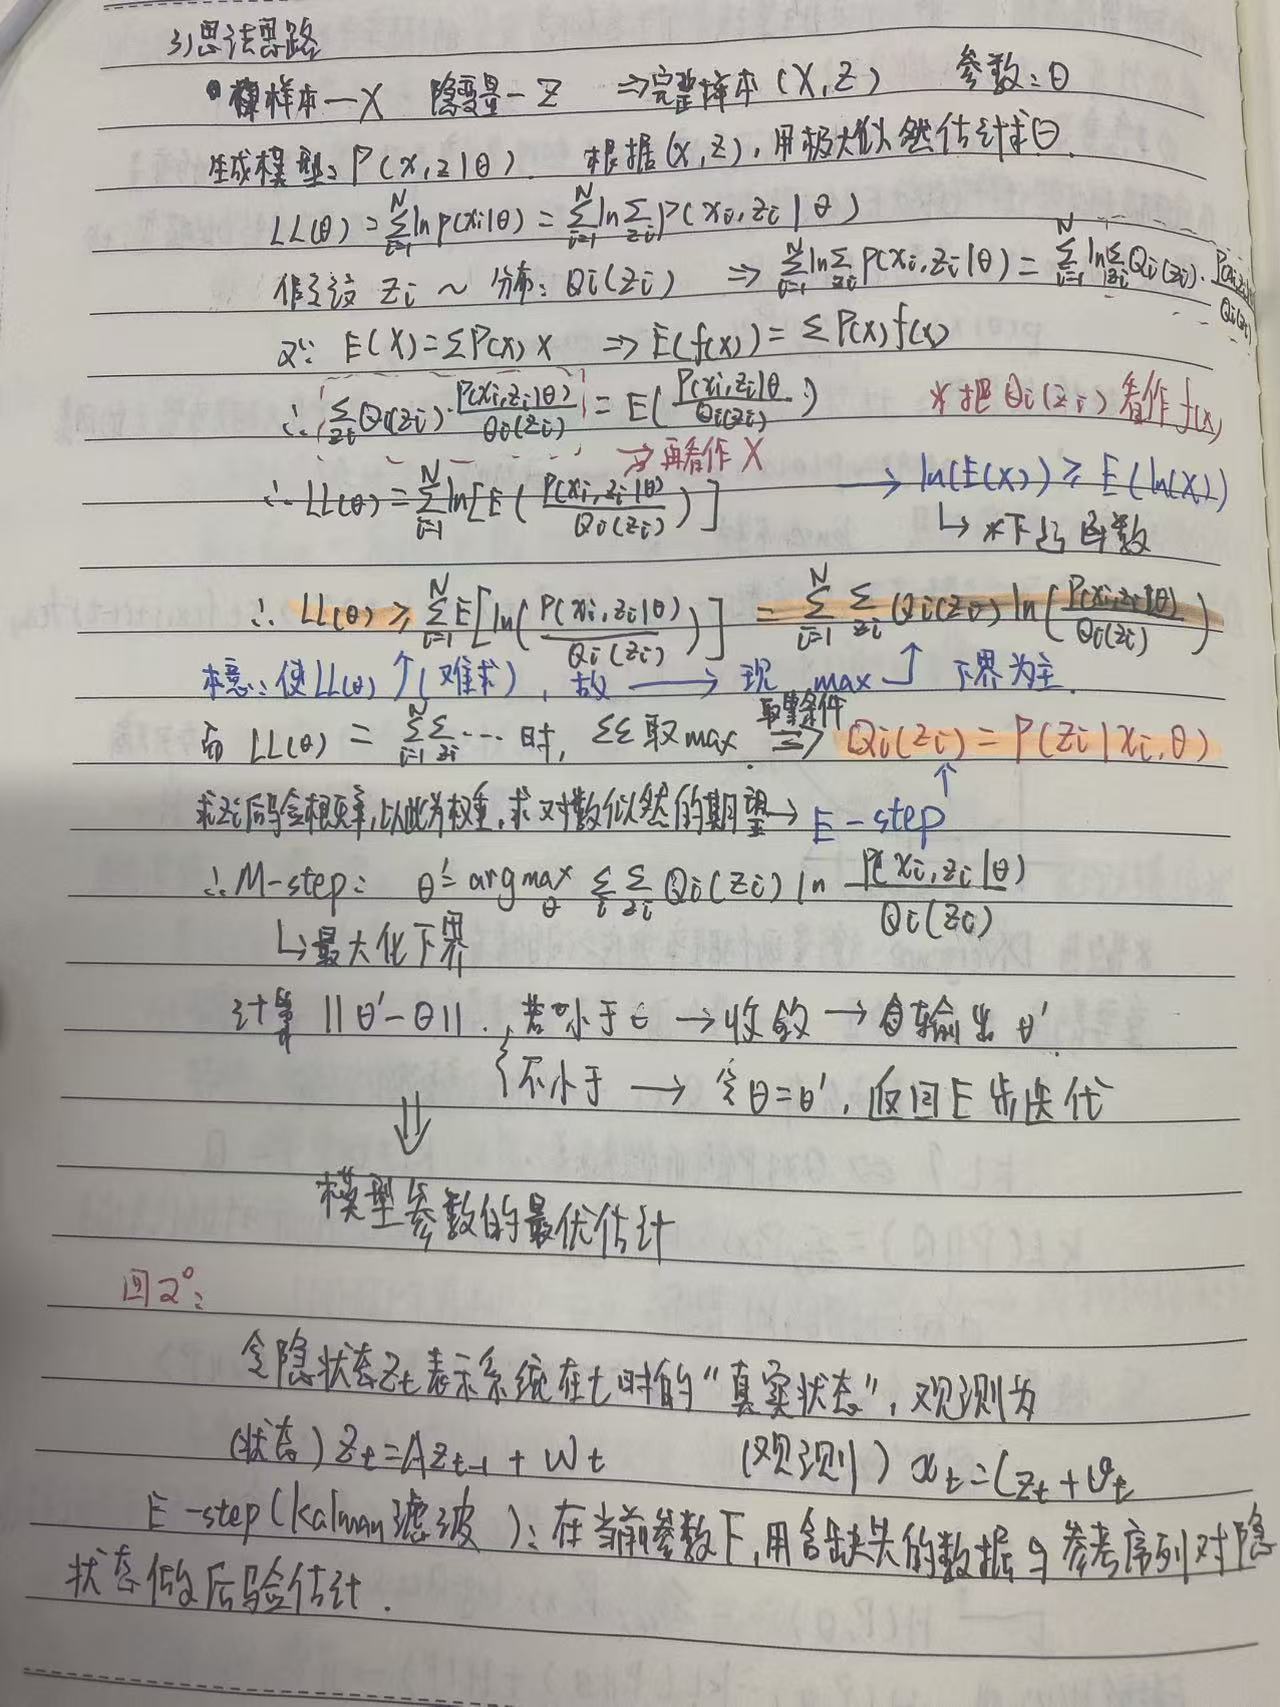 3)思法思路
样本—X 隐变量—Z ⇒完整样本(X,Z) 参数:θ
生成模型:P(x,z|θ). 根据(x,z),用极大似然估计求θ.
LL(θ)=∑_{i=1}^{N} ln P(xi|θ) = ∑_{i=1}^{N} ln ∑_{zi} P(xi,zi|θ)
假设 zi ~ 分布:Qi(zi) ⇒ ∑_{i=1}^{N} ln ∑_{zi} P(xi,zi|θ) = ∑_{i=1}^{N} ln ∑_{zi} Qi(zi)·P(xi,zi|θ)/Qi(zi)
又∵ E(X)=∑P(x)x ⇒ E(f(x))=∑P(x)f(x)
∴ ∑_{zi} Qi(zi)·P(xi,zi|θ)/Qi(zi) = E(P(xi,zi|θ)/Qi(zi)) *把Qi(zi)看作f(x)
→再看作X
∴ LL(θ)=∑_{i=1}^{N} ln[E(P(xi,zi|θ)/Qi(zi))] → ln(E(x)) ≥ E(ln(x))
↳ *下凸函数
∴ LL(θ) ≥ ∑_{i=1}^{N} E[ln(P(xi,zi|θ)/Qi(zi))] = ∑_{i=1}^{N} ∑_{zi} Qi(zi) ln(P(xi,zi|θ)/Qi(zi))
本意:使LL(θ)↑(难求),故 → 现 max 下界为主.
而 LL(θ) = ∑_{i=1}^{N} ∑_{zi} … 时, ∑∑取max. 取等条件 ⇒ Qi(zi)=P(zi|xi,θ)
求zi后验概率,以此为权重,求对数似然的期望→ E-step
∴ M-step: θ'=argmax_θ ∑_i ∑_{zi} Qi(zi) ln P(xi,zi|θ)/Qi(zi)
↳最大化下界
计算 ||θ'-θ||. {若小于ε → 收敛 → 输出 θ'.
不小于 → 令θ=θ',返回E步迭代
⇓
模型参数的最优估计
回2°:
令隐状态Zt表示系统在t时的“真实状态”,观测为
(状态) Zt=AZt-1 + Wt (观测) xt=CZt+vt
E-step(Kalman滤波):在当前参数下,用含缺失的数据与参考序列对隐
状态做后验估计.